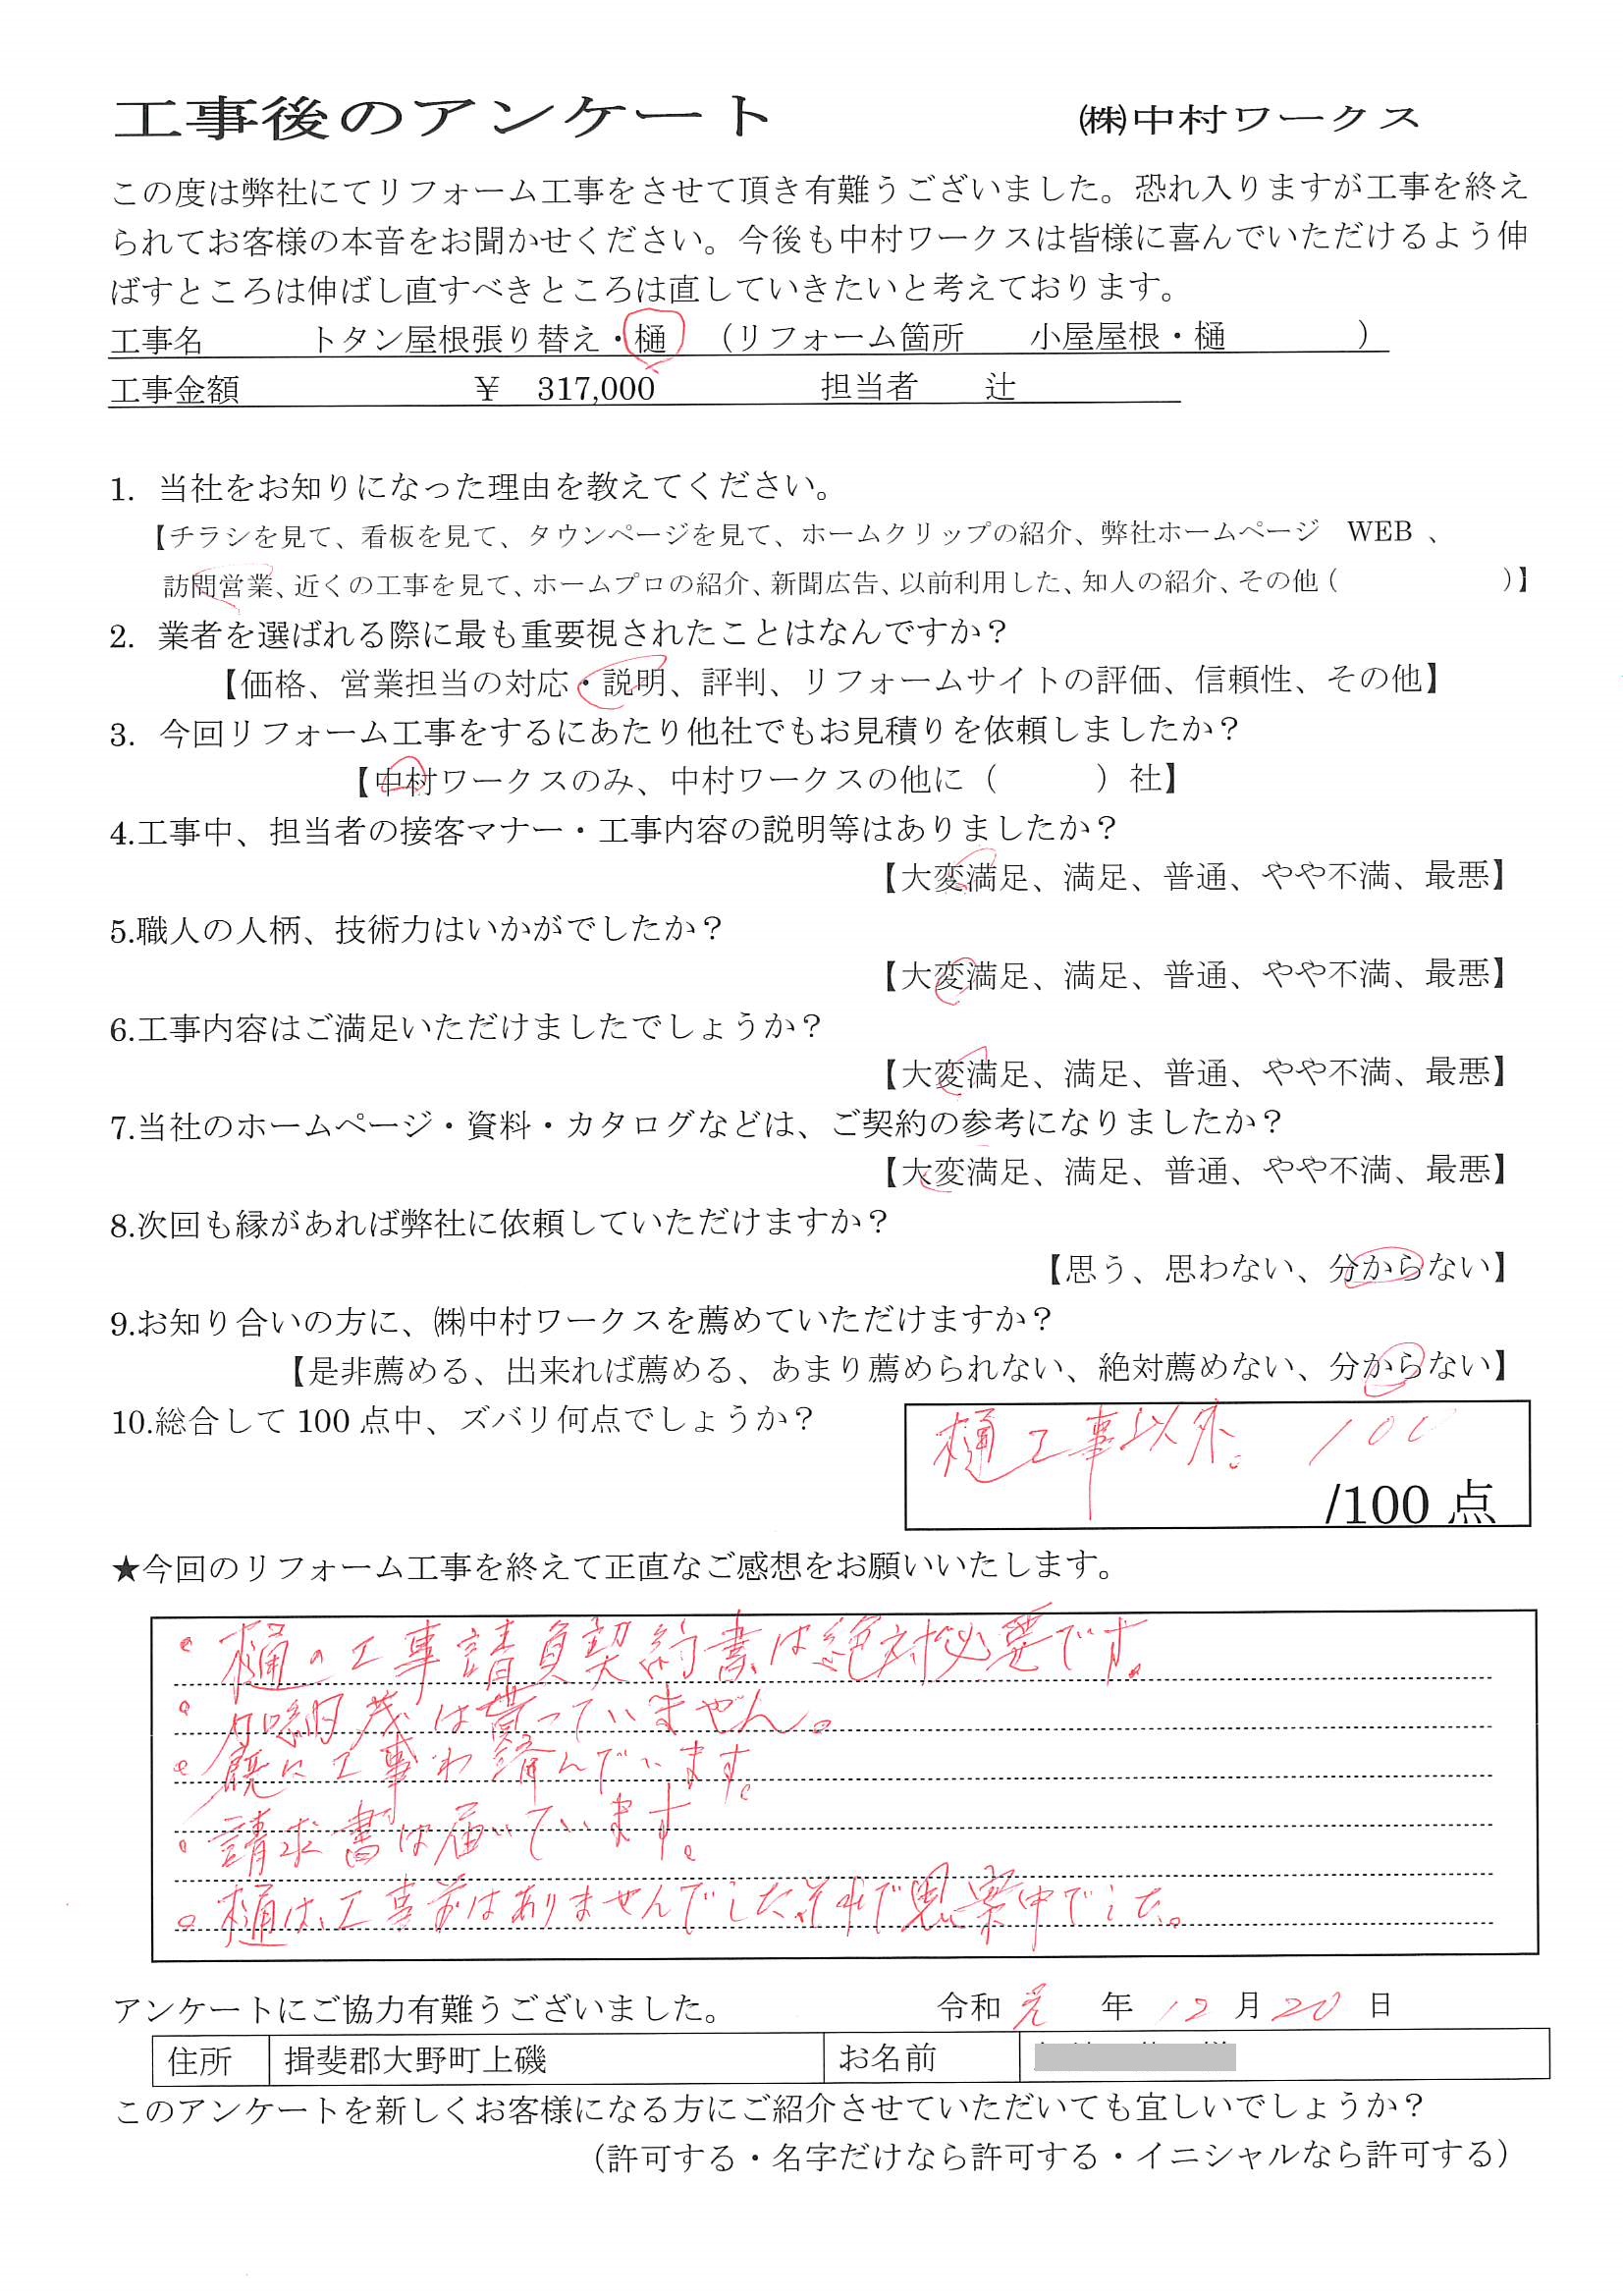 工事後のアンケート ㈱中村ワークス
この度は弊社にてリフォーム工事をさせて頂き有難うございました。恐れ入りますが工事を終え
られてお客様の本音をお聞かせください。今後も中村ワークスは皆様に喜んでいただけるよう伸
ばすところは伸ばし直すべきところは直していきたいと考えております。
工事名 トタン屋根張り替え・樋 （リフォーム箇所 小屋屋根・樋 ）
工事金額 ￥ 317,000 担当者 辻
1. 当社をお知りになった理由を教えてください。
【チラシを見て、看板を見て、タウンページを見て、ホームクリップの紹介、弊社ホームページ WEB 、
訪問営業、近くの工事を見て、ホームプロの紹介、新聞広告、以前利用した、知人の紹介、その他（ ）】
2. 業者を選ばれる際に最も重要視されたことはなんですか？
【価格、営業担当の対応・説明、評判、リフォームサイトの評価、信頼性、その他】
3. 今回リフォーム工事をするにあたり他社でもお見積りを依頼しましたか？
【中村ワークスのみ、中村ワークスの他に（ ）社】
4.工事中、担当者の接客マナー・工事内容の説明等はありましたか？
【大変満足、満足、普通、やや不満、最悪】
5.職人の人柄、技術力はいかがでしたか？
【大変満足、満足、普通、やや不満、最悪】
6.工事内容はご満足いただけましたでしょうか？
【大変満足、満足、普通、やや不満、最悪】
7.当社のホームページ・資料・カタログなどは、ご契約の参考になりましたか？
【大変満足、満足、普通、やや不満、最悪】
8.次回も縁があれば弊社に依頼していただけますか？
【思う、思わない、分からない】
9.お知り合いの方に、㈱中村ワークスを薦めていただけますか？
【是非薦める、出来れば薦める、あまり薦められない、絶対薦めない、分からない】
10.総合して 100 点中、ズバリ何点でしょうか？
樋工事以外。 100
/100 点
★今回のリフォーム工事を終えて正直なご感想をお願いいたします。
。樋の工事請負契約書は絶対必要です。
。は貰っていません。
。既に工事わ済んでいます。
。請求書は届いています。
。樋は、工事前はありませんでした。それで思案中でした。
アンケートにご協力有難うございました。 令和 元 年 12 月 20 日
住所 揖斐郡大野町上磯 お名前
このアンケートを新しくお客様になる方にご紹介させていただいても宜しいでしょうか？
（許可する・名字だけなら許可する・イニシャルなら許可する）